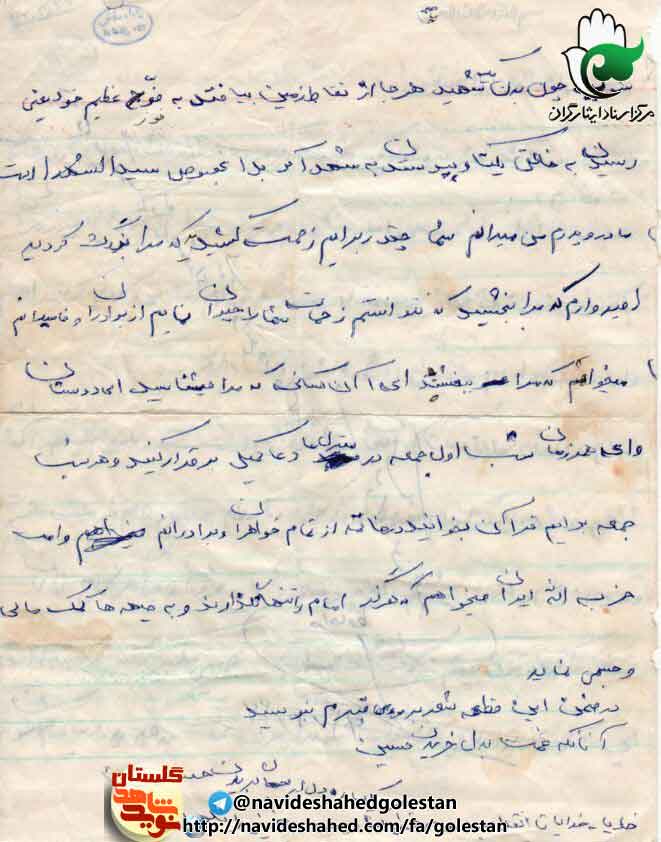 مرکز اسناد ایثارگران
چون بدن شهید هر جا از نقاط زمین بیافتد به موج عظیم خود یعنی
رسیدن به خالق یکتا و پیوستن به شهدا کربلا بخصوص سیدالشهدا است
مادر و پدرم من میدانم شما چقدر برایم زحمت کشیدید که مرا بزرگ کردید
امیدوارم که مرا ببخشید که نتوانستم زحمات شما را جبران نمایم از برادران و فامیلانم
میخواهم که مرا ببخشند ای آن کسانی که مرا میشناسید ای دوستان
وای همرزمان شب اول جمعه در منزل ما دعا کمیل برقرار کنید و هر شب
جمعه برایم قرآن بخوانید در خاتمه از تمام خواهران و برادرانم و امت
حزب الله ایران میخواهم که هرگز امام را تنها نگذارند و به جبهه ها کمک مالی
و جسمی نماید
در ضمن این قطعه شعر بر روی قبرم بنویسید
آنانکه غمت بدل خریدن حسین
خدایا خدایا تا انقلاب
گلستان
نوید شاهد
@navideshahedgolestan
http://navideshahed.com/fa/golestan